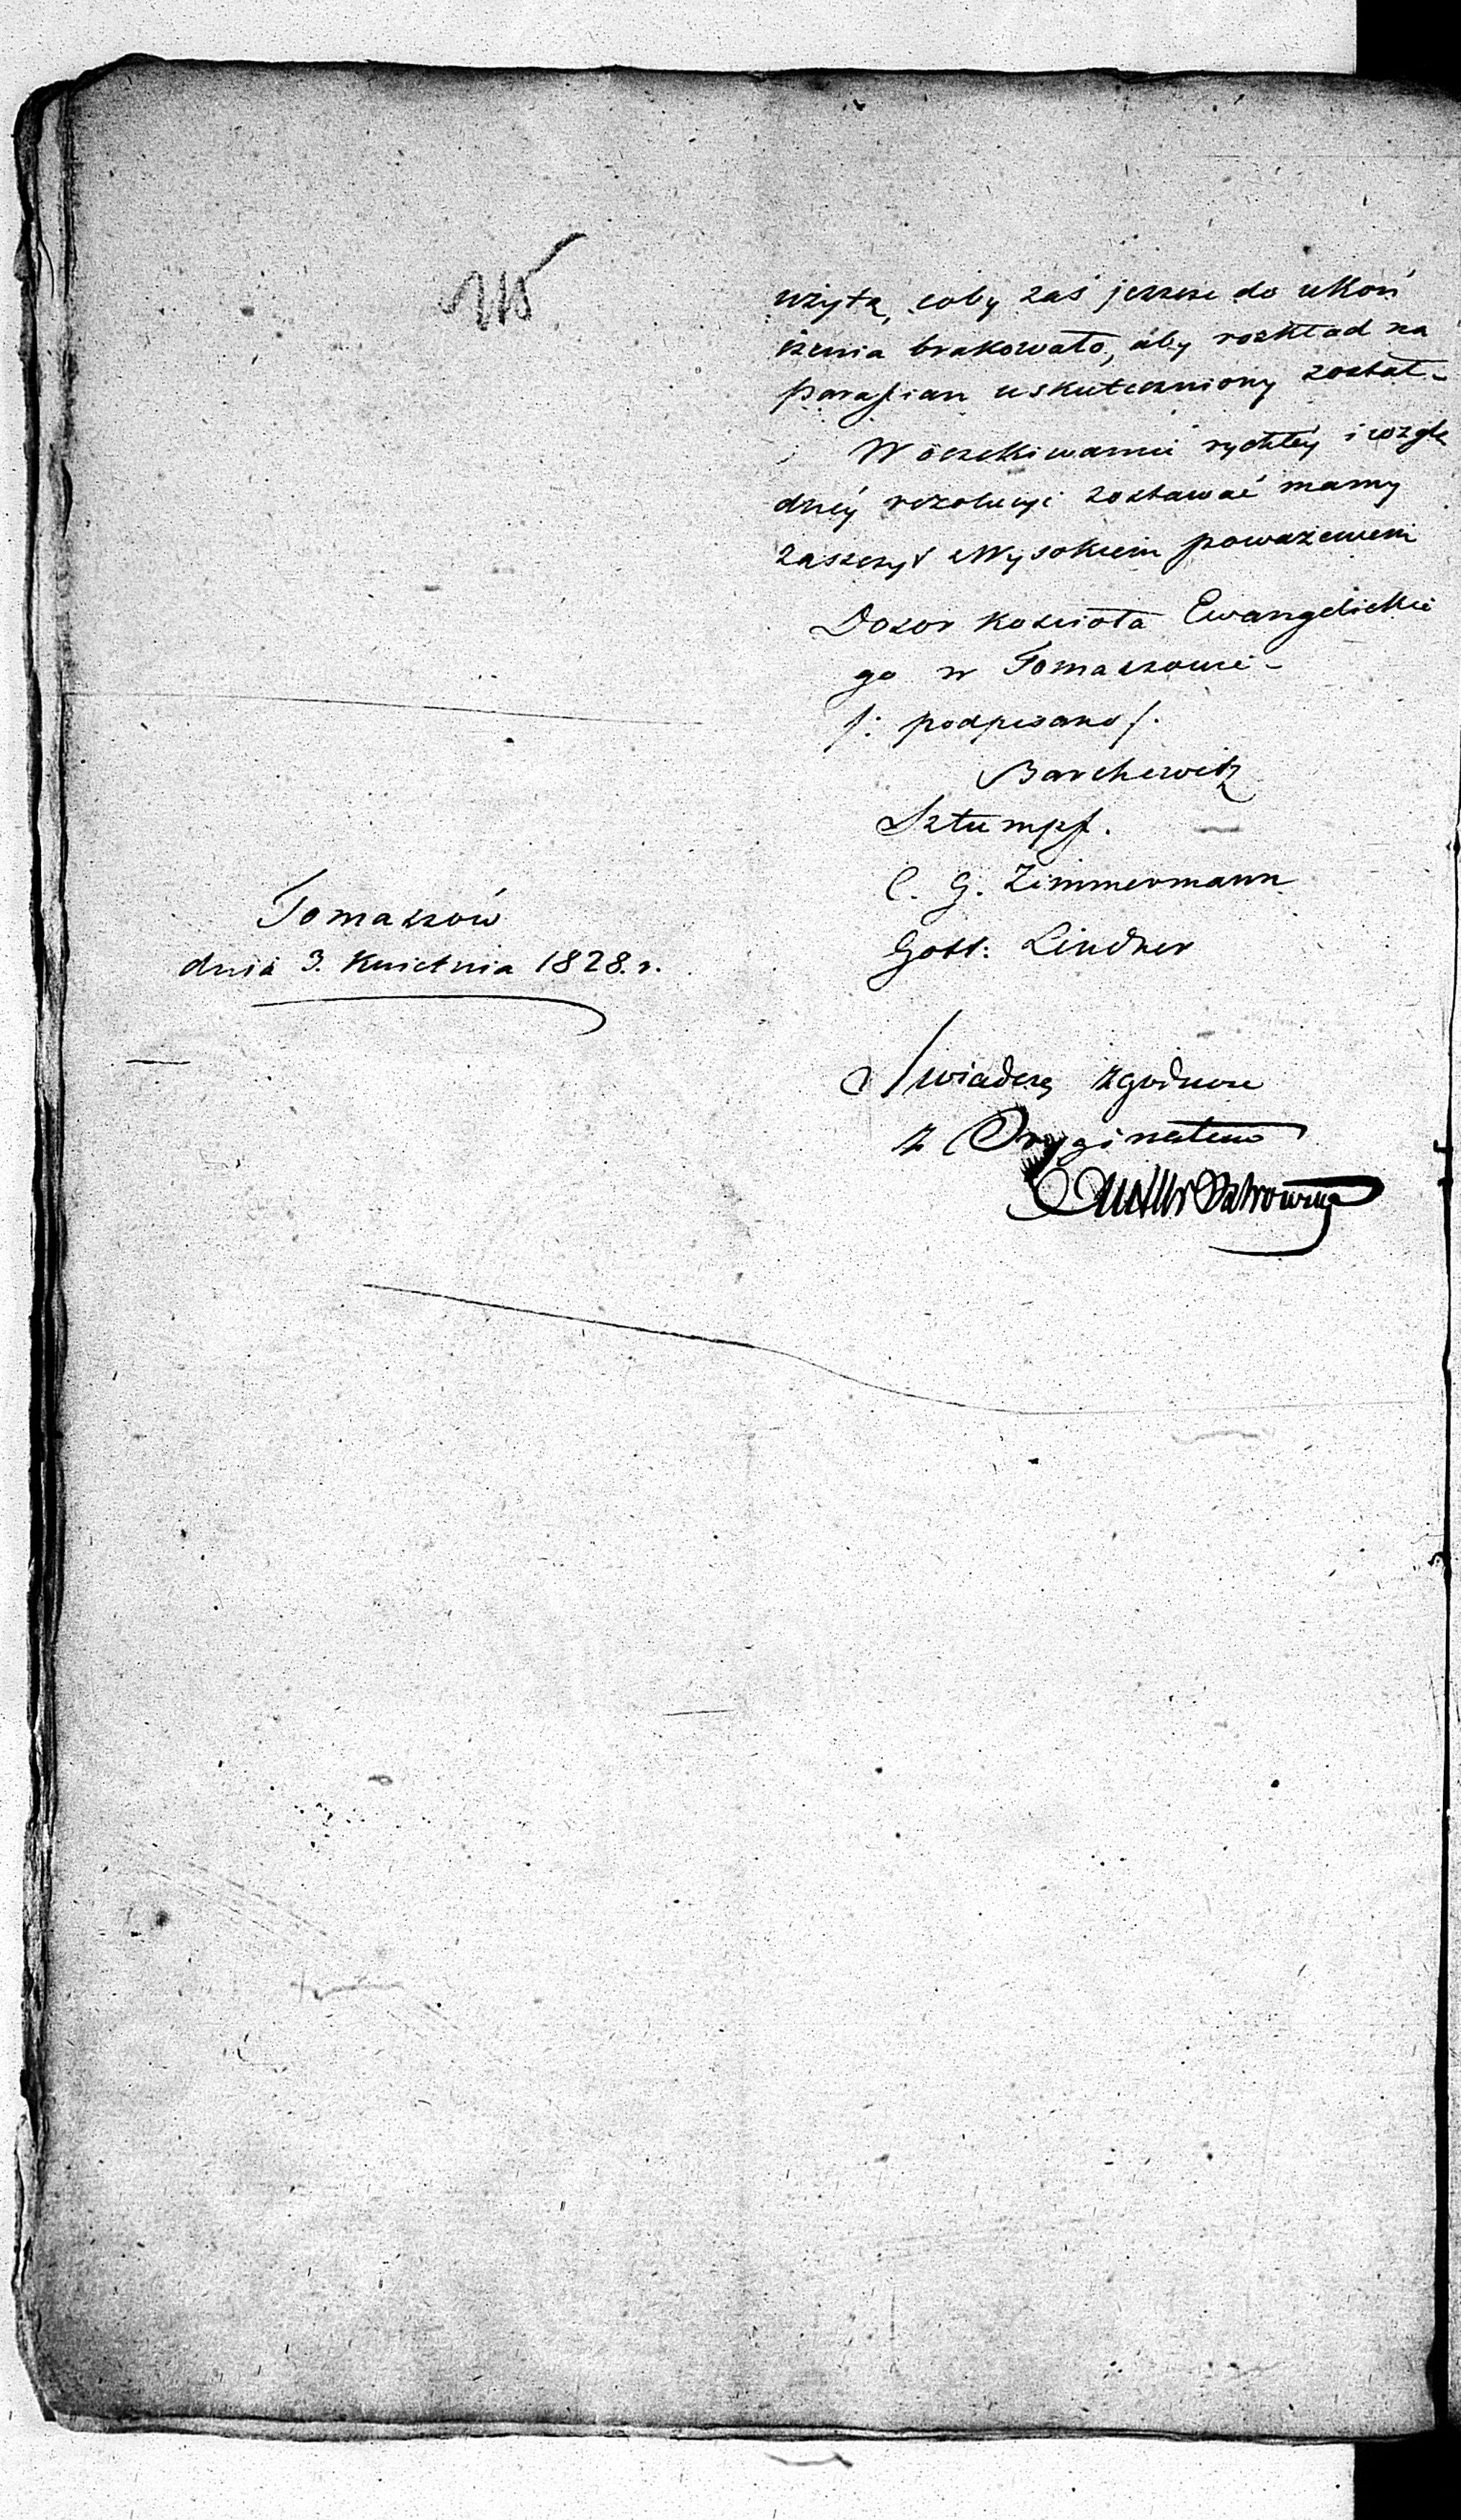 115
użytą, coby zaś jeszcze do ukoń
czenia brakowało, aby rozkład na
parafian uskuteczniony został –
W oczekiwaniu rychłéy i wzglę
dnéy rezolucyi zostawać mamy
zaszczyt z Wysokiem poważeniem
Dozor Kościoła Ewangelickie
go w Tomaszowie –
/: podpisano /.
Barchewitz
Sztumpf.
C. G. Zimmermann
Gottl: Lindner
Tomaszów
dnia 3. Kwietnia 1828. r.
Swiadczę zgodnosc
z Oryginałem